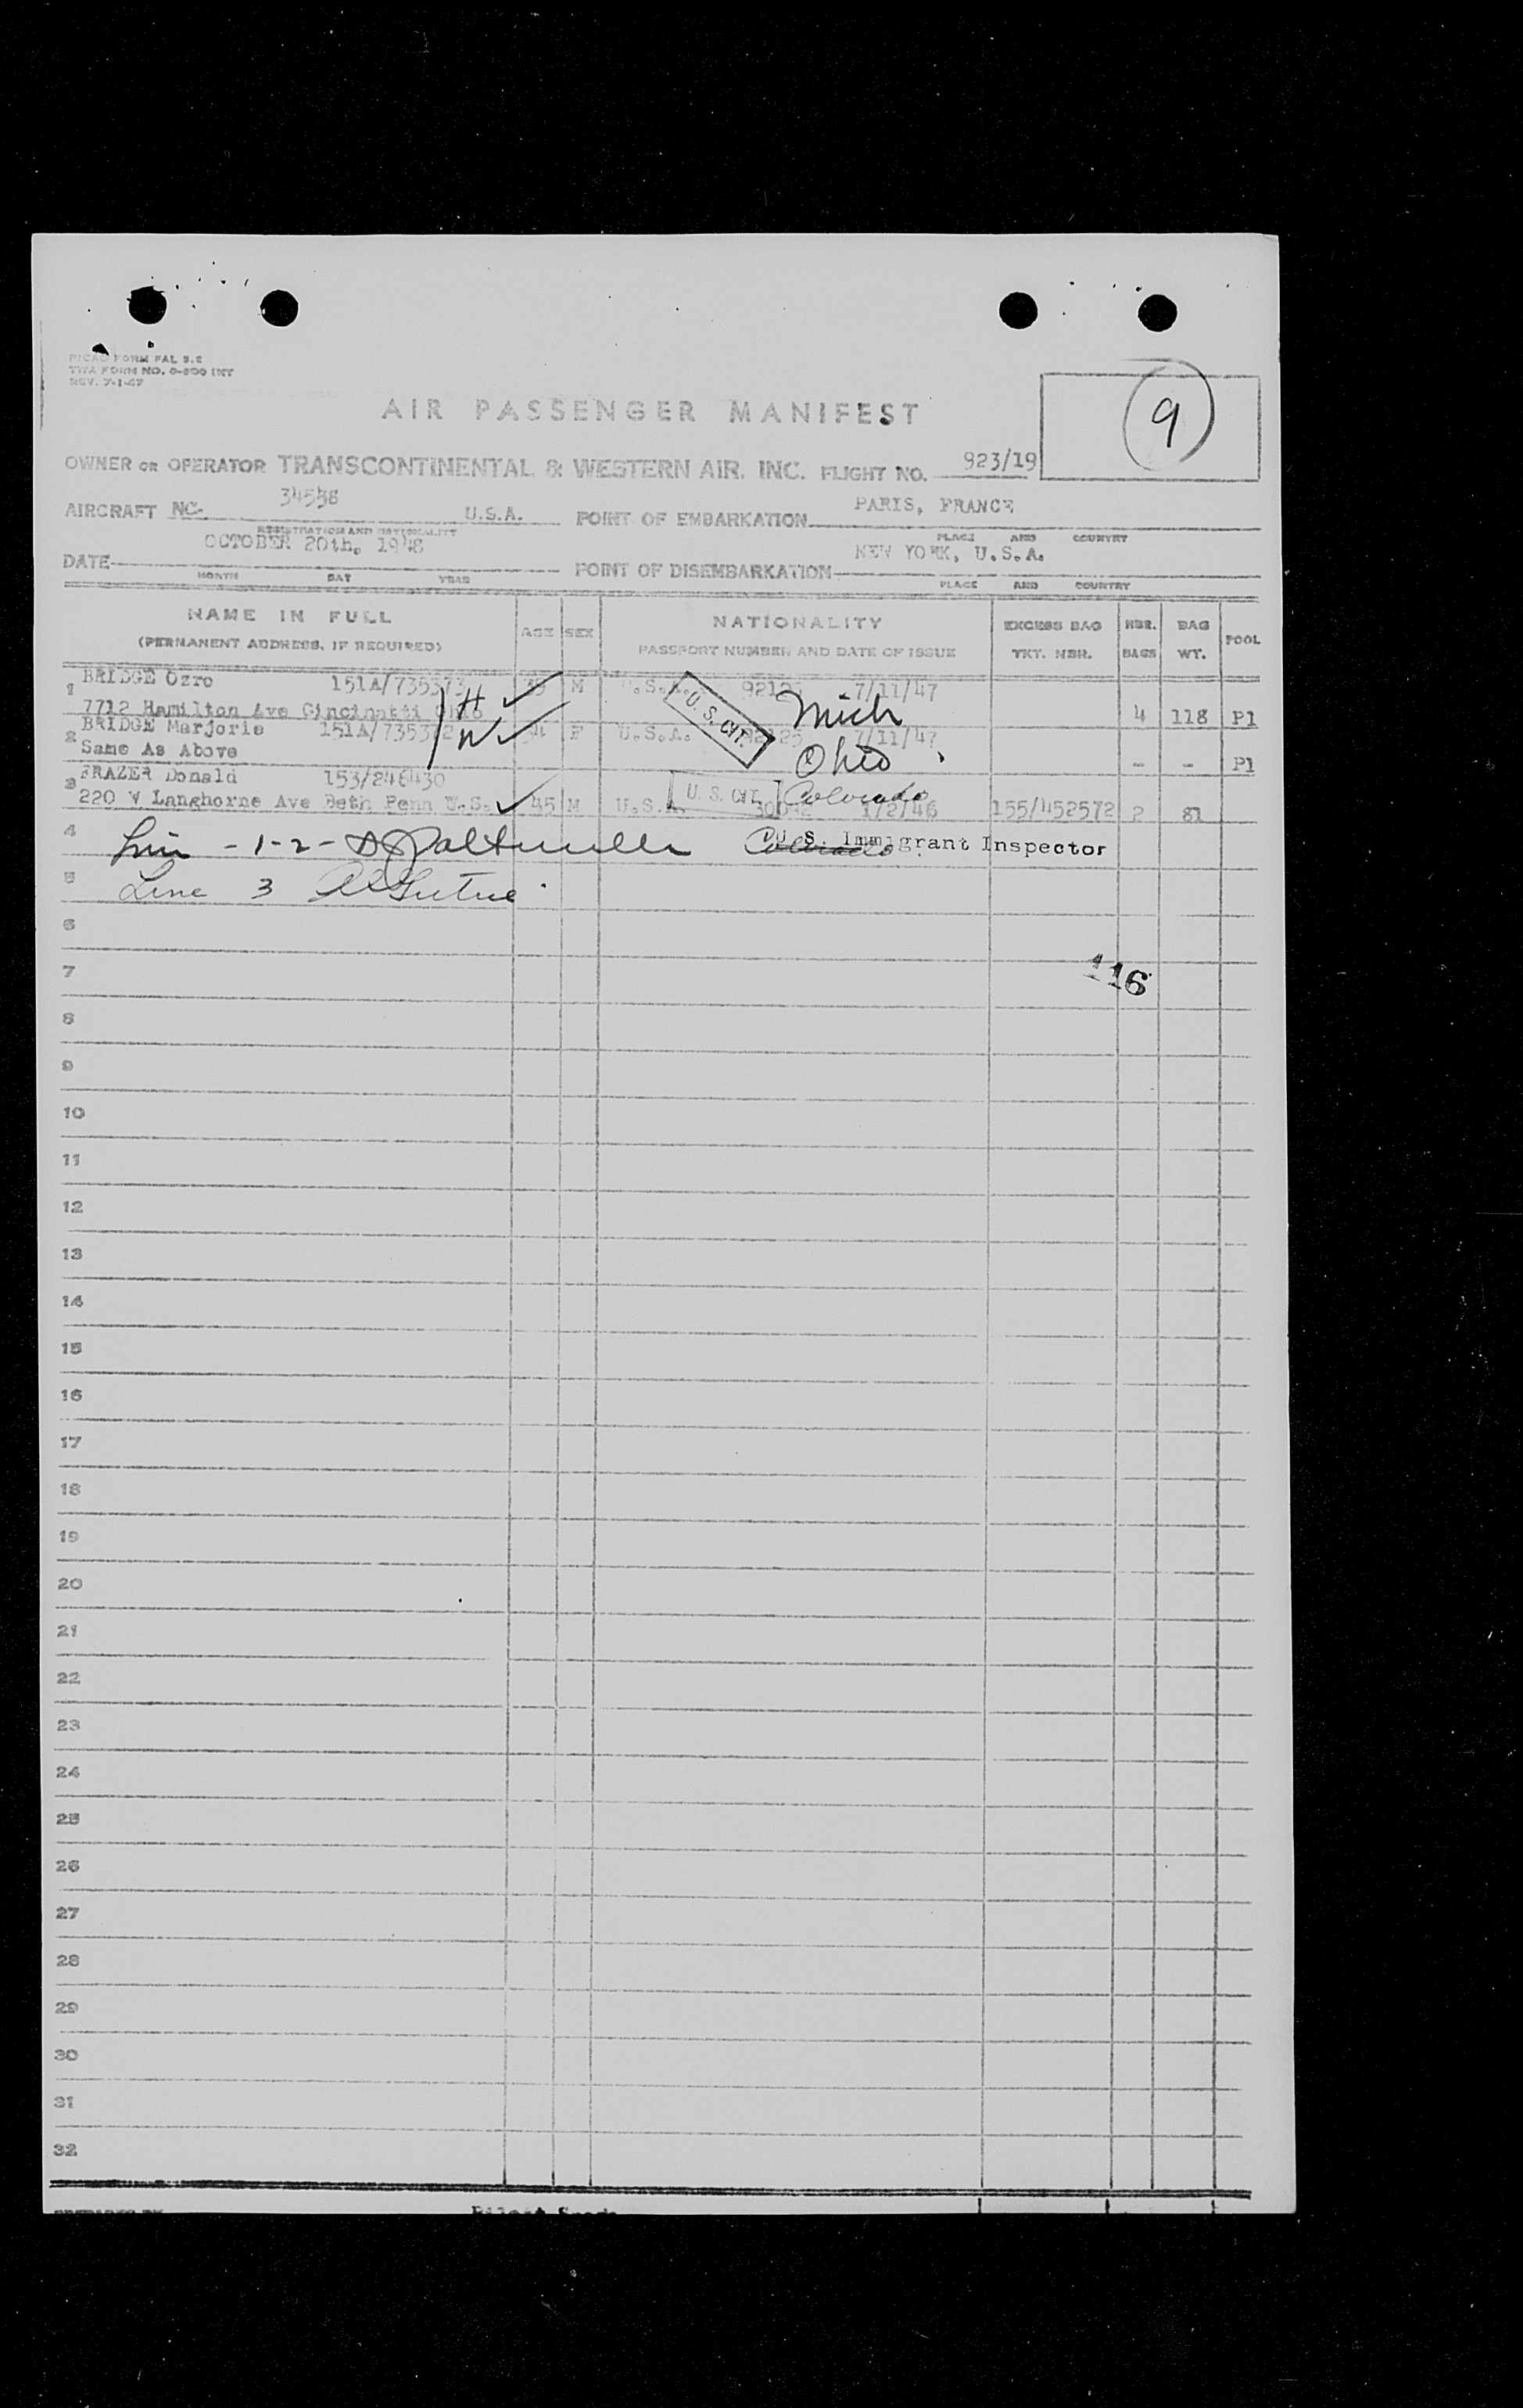 PICAO FORM FAL 3.2
TWA FORM NO. O-800 INT
REV. 7-1-47
AIR PASSENGER MANIFEST
9
OWNER OR OPERATOR TRANSCONTINENTAL & WESTERN AIR, INC. FLIGHT NO. 923/19
AIRCRAFT NC- U.S.A. POINT OF EMBARKATION PARIS, FRANCE
REGISTRATION AND NATIONALITY PLACE AND COUNTRY
DATE OCTOBER 20th. 1948 POINT OF DISEMBARKATION NEW YORK, U.S.A.
MONTH DAY YEAR PLACE AND COUNTRY
NAME IN FULL
(PERMANENT ADDRESS, IF REQUIRED)
AGE SEX
NATIONALITY
PASSPORT NUMBER AND DATE OF ISSUE
EXCESS BAG TKT. NBR.
NBR. BAGS
BAG WT.
POOL
1 BRIDGE Ozro M U.S.A. 7/11/47
7712 Hamilton Ave Cincinatti Ohio H U.S. CIT. Mich 4 118 Pl
2 BRIDGE Marjorie W F U.S.A. 7/11/47
Same As Above Ohio - - Pl
3 FRAZER Donald 153/246430
220 W Langhorne Ave Beth Penn U.S. 45 M U.S.A. U. S. CIT. Colorado 1/2/46 155/452572 2 81
4 -1-2- Colorado U. S. Immigrant Inspector
5 Line 3
6
7
116
8
9
10
11
12
13
14
15
16
17
18
19
20
21
22
23
24
25
26
27
28
29
30
31
32